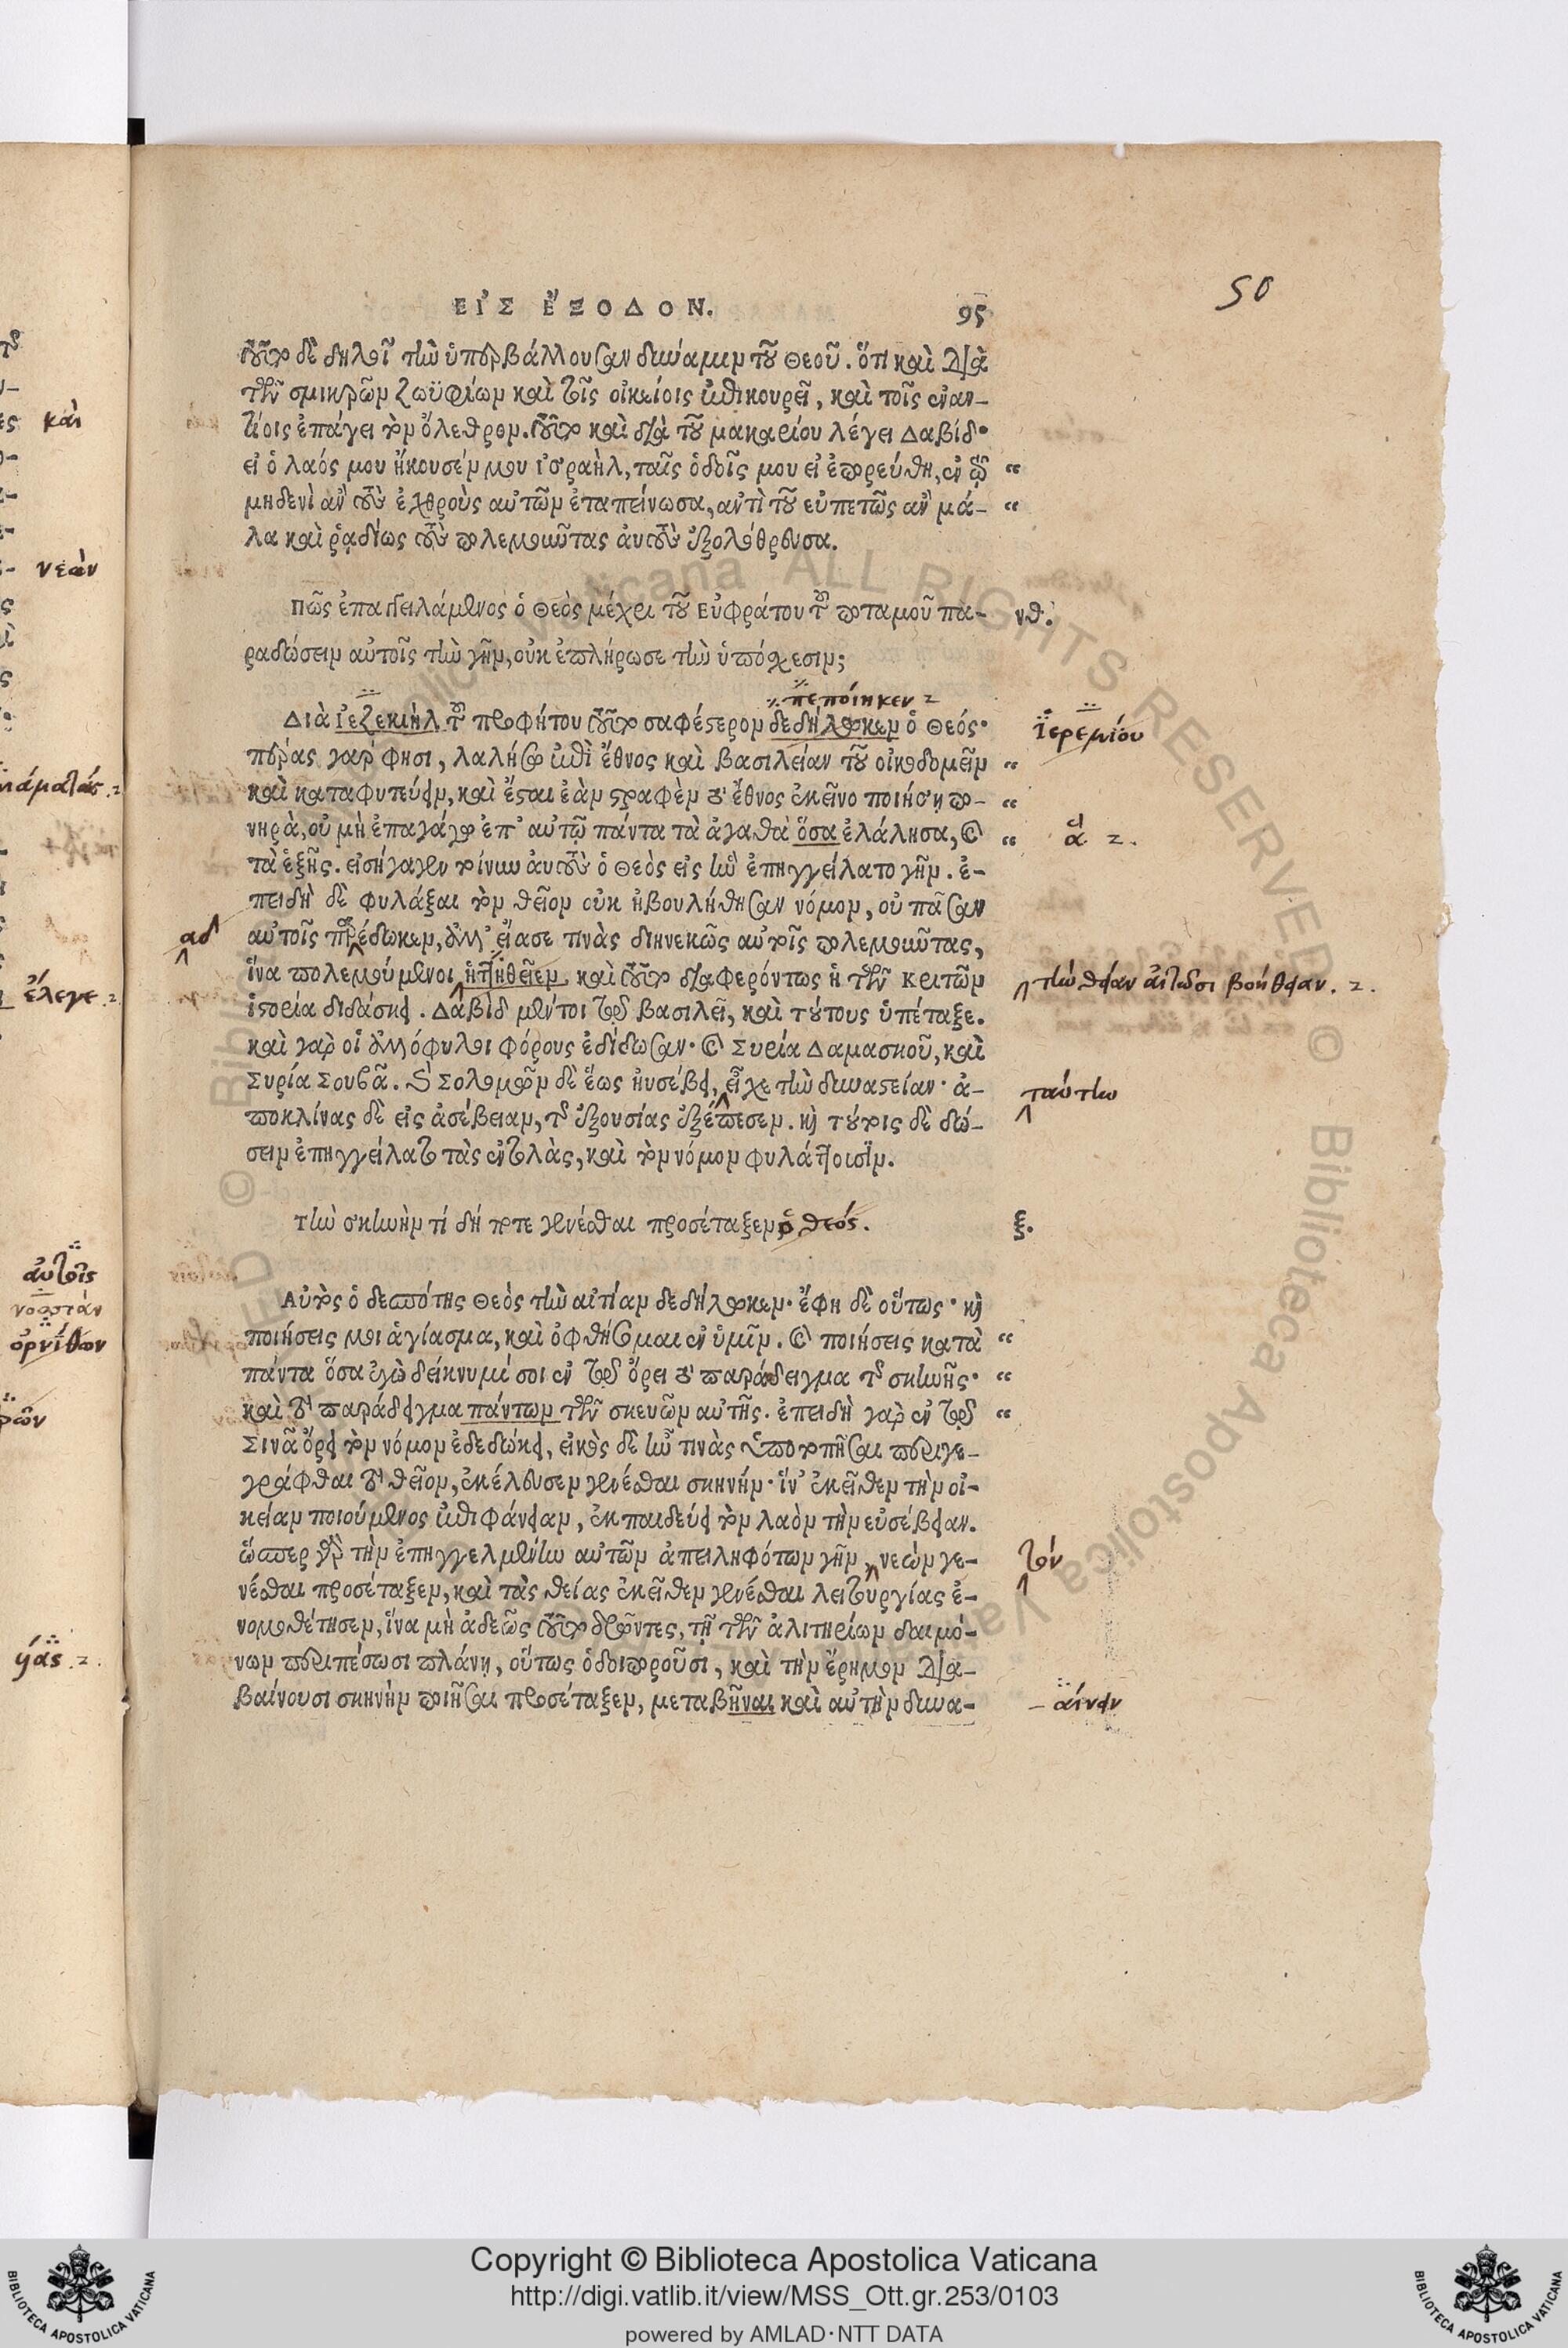 50
ΕἸΣ ἜΞΟΔΟΝ. 95
τοῦτο δὲ δηλοῖ τὴν ὑπερβάλλουσαν δύναμιν τοῦ Θεοῦ. ὅτι καὶ διὰ
τῶν σμικρῶν ζωϋφίων καὶ τοῖς οἰκείοις ἐπικουρεῖ, καὶ τοῖς ἐναν-
τίοις ἐπάγει τὸν ὄλεθρον. τοῦτο καὶ διὰ τοῦ μακαρίου λέγει Δαβίδ·
εἰ ὁ λαός μου ἤκουσέν μου ἰσραὴλ, ταῖς ὁδοῖς μου εἰ ἐπορεύθη, ἐν τῷ “
μηδενὶ ἂν τοὺς ἐχθροὺς αὐτῶν ἐταπείνωσα, αντὶ τοῦ εὐπετῶς ἂν μά- “
λα καὶ ῥᾳδίως τοὺς πολεμοῦντας ἀυτοὺς ἐξολόθρευσα.
Πῶς ἐπαγγειλάμενος ὁ Θεὸς μέχρι τοῦ Εὐφράτου τοῦ ποταμοῦ πα- νθ.
ραδώσειν αὐτοῖς τὴν γῆν, οὐκ ἐπλήρωσε τὴν ὑπόσχεσιν;
πεποίηκεν
Διὰ ἰεζεκιὴλ τοῦ προφήτου τοῦτο σαφέστερον δεδήλωκεν ὁ Θεός· ἱερεμίου
πέρας γαρ φησι, λαλήσω ἐπὶ ἔθνος καὶ βασιλείαν τοῦ οἰκοδομεῖν “
καὶ καταφυτεύειν, καὶ ἔσται ἐὰν στραφὲν τὸ ἔθνος ἐκεῖνο ποιήσῃ πο- “
νηρὰ, οὐ μὴ ἐπαγάγω ἐπ' αὐτῷ πάντα τὰ ἀγαθὰ ὅσα ἐλάλησα, καὶ “ ἃ
τὰ ἑξῆς. εἰσήγαγεν τοίνυν ἀυτοὺς ὁ Θεὸς εἰς ἣν ἐπηγγείλατο γῆν. ἐ-
πειδὴ δὲ φυλάξαι τὸν θεῖον οὐκ ἠβουλήθησαν νόμον, οὐ πᾶσαν
αὐτοῖς παρέδωκεν, ἀλλ' εἴασε τινὰς διηνεκῶς αὐτοῖς πολεμοῦντας,
ἵνα πολεμούμενοι ἡττηθεῖεν καὶ τοῦτο διαφερόντως ἡ τῶν Κριτῶν τὴν θείαν αἰτῶσι βοήθειαν.
ἱστορία διδάσκει. Δαβὶδ μέντοι τῷ βασιλεῖ, καὶ τούτους ὑπέταξε.
καὶ γαρ οἱ ἀλλόφυλοι φόρους ἐδίδωσαν· καὶ Συρία Δαμασκοῦ, καὶ
Συρία Σουβᾶ. ὁ Σολομῶν δὲ ἕως ηὐσέβει, εἶχε τὴν δυναστείαν· ἀ- ταύτην
ποκλίνας δὲ εἰς ἀσέβειαν, τῆς ἐξουσίας ἐξέπεσεν. καὶ τούτοις δὲ δώ-
σειν ἐπηγγείλατο τὰς ἐντολὰς, καὶ τὸν νόμον φυλάττουσιν.
Τὴν σκηνὴν τί δή ποτε γενέσθαι προσέταξεν ὁ θεός. ξ.
Αὐτὸς ὁ δεσπότης Θεὸς τὴν αἰτίαν δεδήλωκεν· ἔφη δὲ οὕτως· καὶ
ποιήσεις μοι ἁγίασμα, καὶ ὀφθήσομαι ἐν ὑμῖν. καὶ ποιήσεις κατὰ “
πάντα ὅσα ἐγὼ δείκνυμί σοι ἐν τῷ ὄρει τὸ παράδειγμα τῆς σκηνῆς· “
καὶ τὸ παράδειγμα πάντων τῶν σκευῶν αὐτῆς. ἐπειδὴ γαρ ἐν τῷ “
Σινᾶ ὄρει τὸν νόμον ἐδεδώκει, εἰκὸς δὲ ἦν τινὰς ὑποτοπῆσαι περιγε-
γράφθαι τὸ θεῖον, ἐκέλευσεν γενέσθαι σκηνήν· ἵν' ἐκεῖθεν τὴν οἰ-
κείαν ποιούμενος ἐπιφάνειαν, ἐκπαιδεύει τὸν λαὸν τὴν εὐσέβειαν.
ὥσπερ γὰρ τὴν ἐπηγγελμένην αὐτῶν ἀπειληφότων γῆν, νεὼν γε- τὸν
νέσθαι προσέταξεν, καὶ τὰς θείας ἐκεῖθεν γενέσθαι λειτουργίας ἐ-
νομοθέτησεν, ἵνα μὴ ἀδεῶς τοῦτο δρῶντες, τῇ τῶν ἀλιτηρίων δαιμό-
νων περιπέσωσι πλάνῃ, οὕτως ὁδοιποροῦσι, καὶ τὴν ἔρημον δια-
βαίνουσι σκηνὴν ποιῆσαι προσέταξεν, μεταβῆναι καὶ αὐτὴν δυνα- -αίνειν
καὶ
νεὼν
ἔλεγε
αὐτοῖς
νοσσιὰν
ὀρνίθων
Copyright © Biblioteca Apostolica Vaticana
http://digi.vatlib.it/view/MSS_Ott.gr.253/0103
powered by AMLAD·NTT DATA